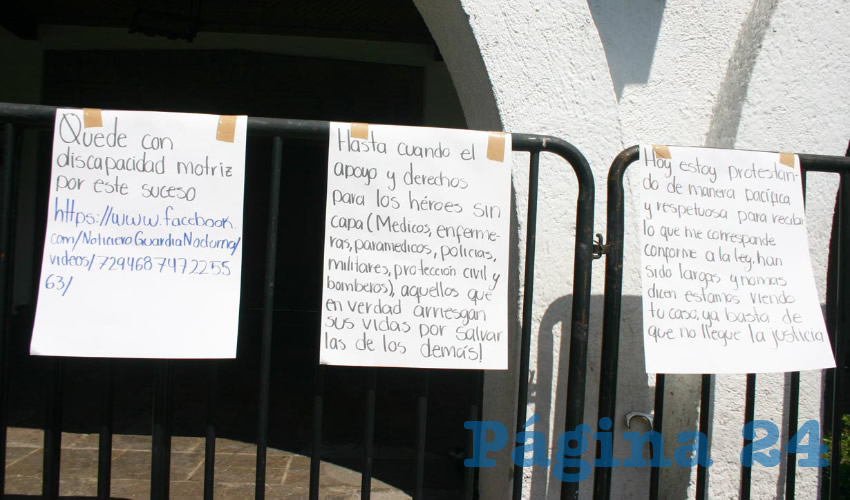 Quede con
discapacidad motriz
por este suceso
https://www.facebook.
com/NoticieroGuardiaNocturna/
videos/7294687472255
63/
Hasta cuando el
apoyo y derechos
para los héroes sin
capa (Medicos, enferme-
ras, paramedicos, policias,
militares, protección civil y
bomberos), aquellos que
en verdad arriesgan
sus vidas por salvar
las de los demás!
Hoy estoy protestan-
do de manera pacífica
y respetuosa para recibir
lo que me corresponde
conforme a la ley, han
sido largas y nomas
dicen estamos viendo
tu caso, ya basta de
que no llegue la justicia
Página 24